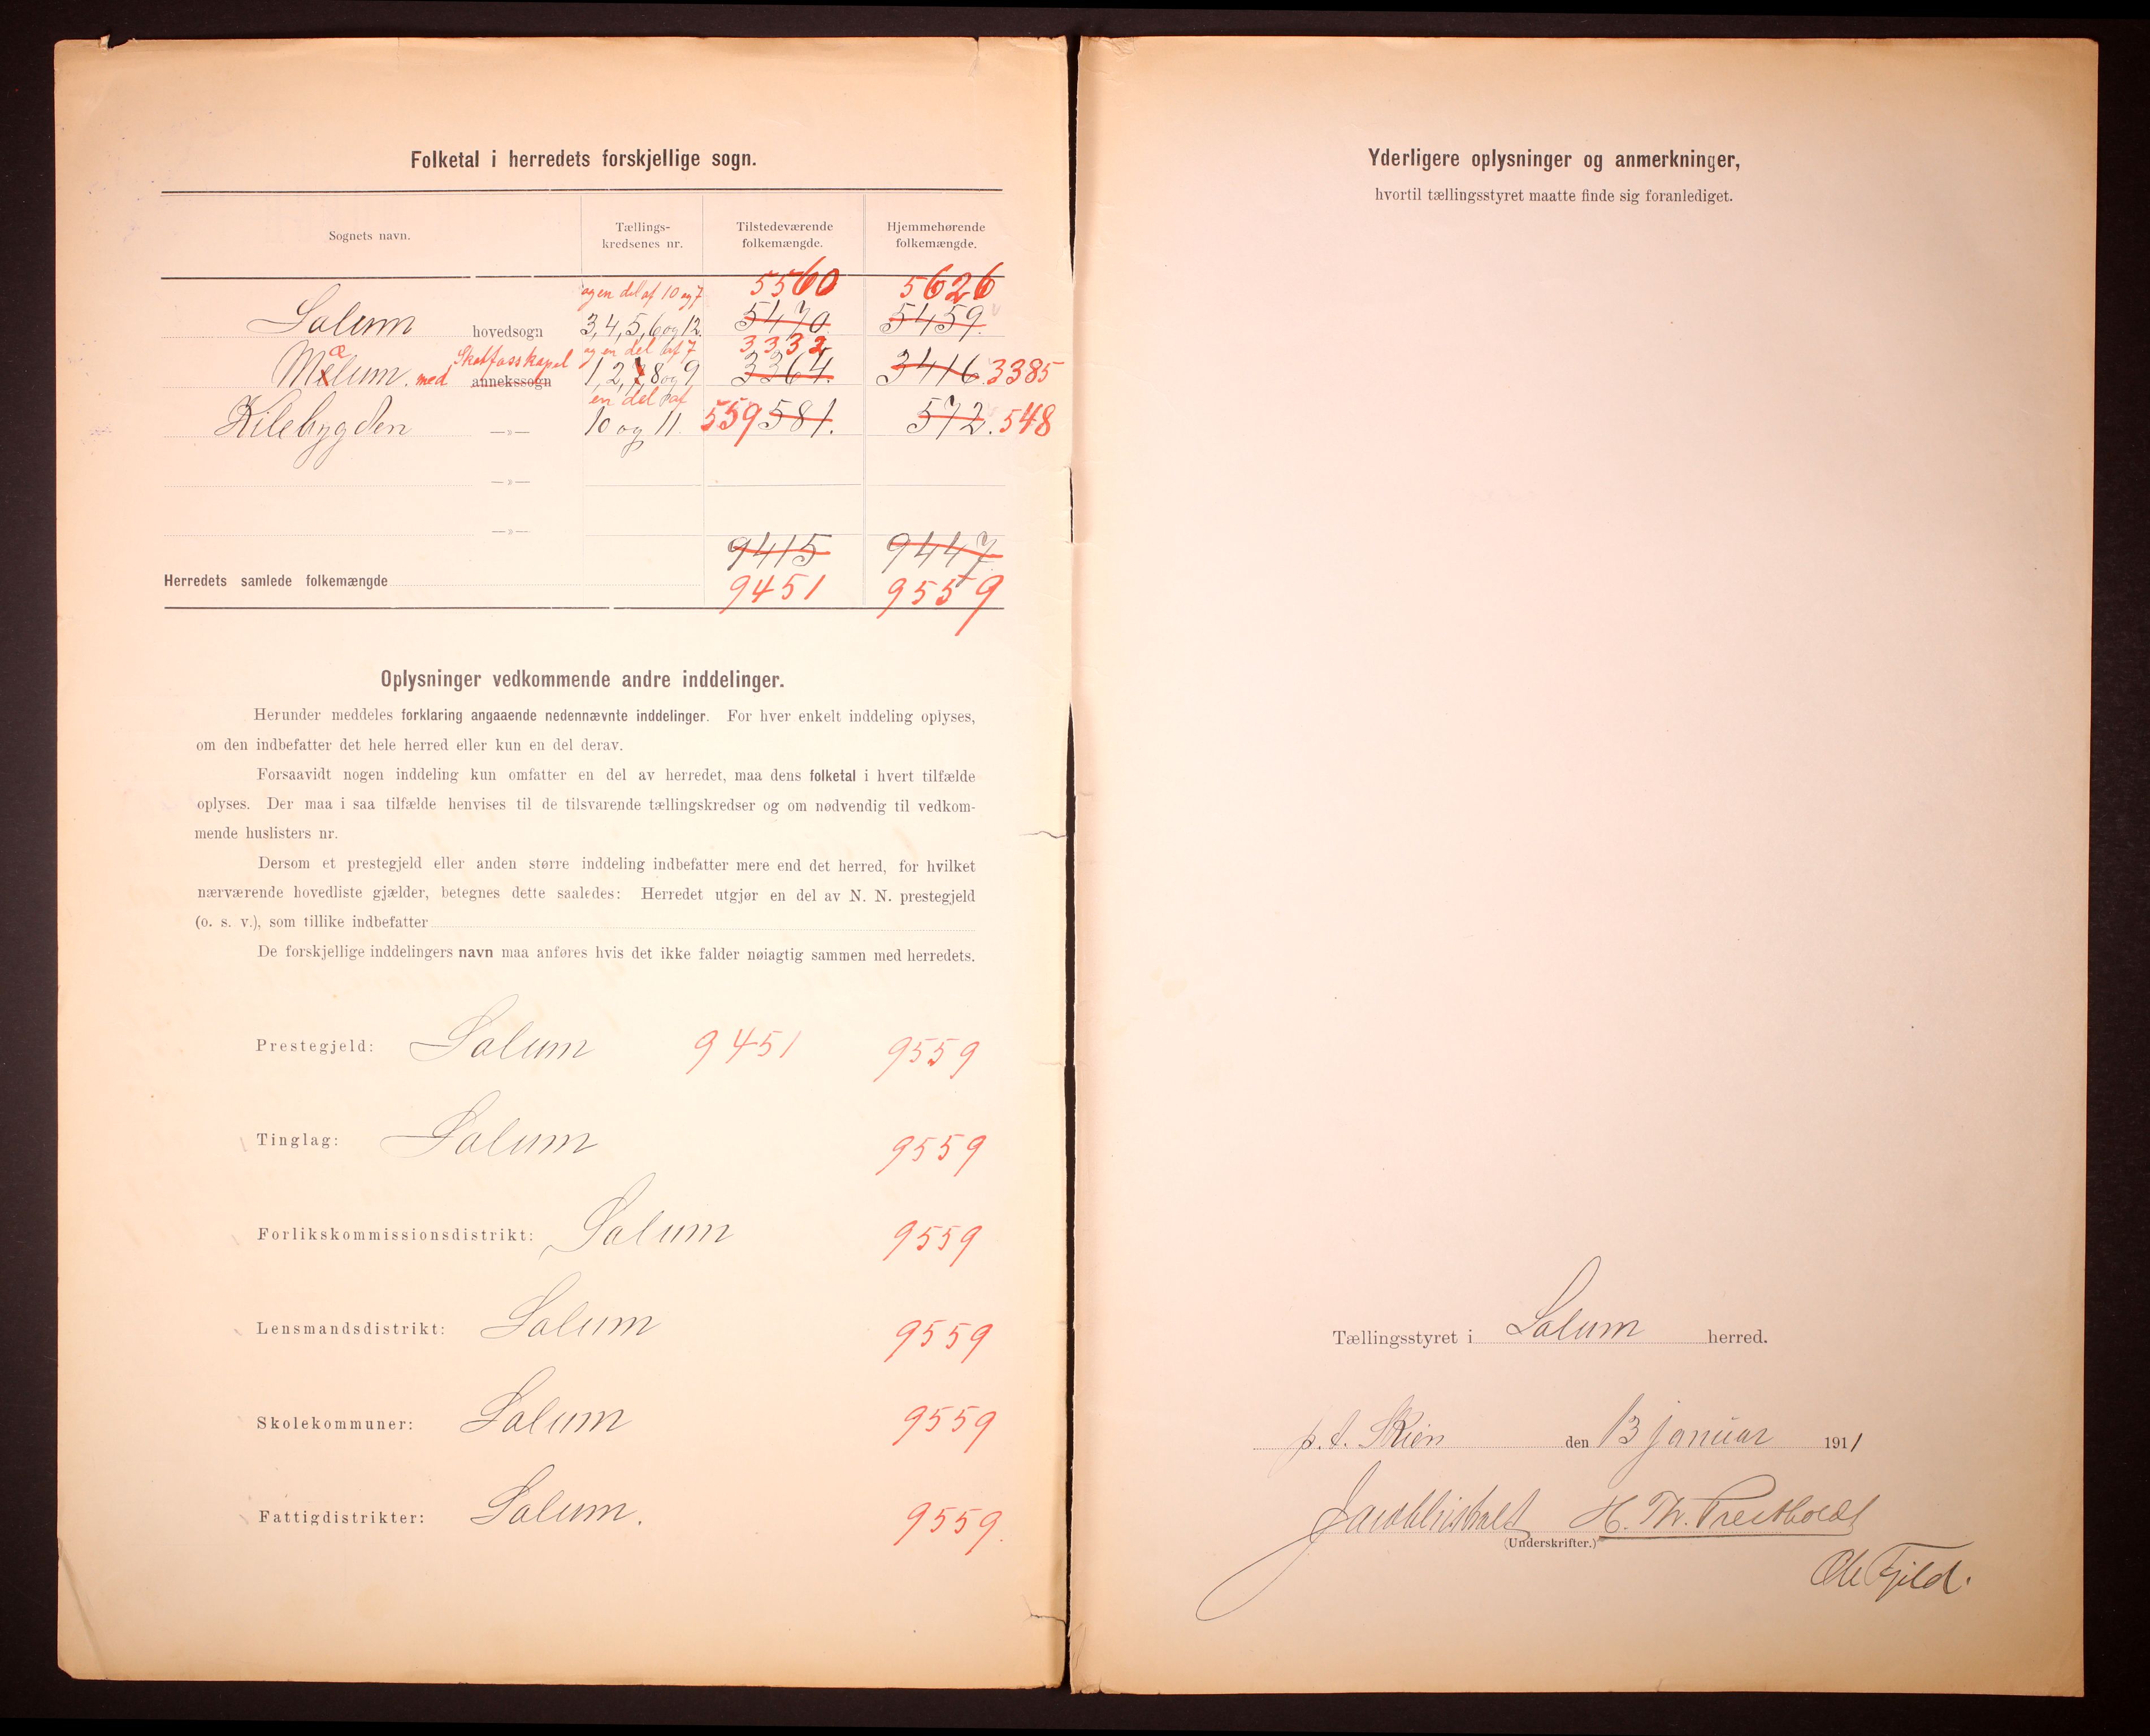 Folketal i herredets forskjellige sogn.
Sognets navn.
Tællings-
kredsenes nr.
Tilstedeværende
folkemængde.
Hjemmehørende
folkemængde.
og en del af 10 og 7 5560 5626
Solum hovedsogn 3,4,5,6 og 12. 5470. 5459.
æ Skotfosskapel og en del af 7 3332
Melum. med annekssogn 1,2,7,8 og 9 3364. 3416. 3385
en del af
Kilebygden —»— 10 og 11. 559 581. 572. 548
—»—
—»—
9415 9447
Herredets samlede folkemængde
9451 9559
Oplysninger vedkommende andre inddelinger.
Herunder meddeles forklaring angaaende nedennævnte inddelinger. For hver enkelt inddeling oplyses,
om den indbefatter det hele herred eller kun en del derav.
Forsaavidt nogen inddeling kun omfatter en del av herredet, maa dens folketal i hvert tilfælde
oplyses. Der maa i saa tilfælde henvises til de tilsvarende tællingskredser og om nødvendig til vedkom-
mende huslisters nr.
Dersom et prestegjeld eller anden større inddeling indbefatter mere end det herred, for hvilket
nærværende hovedliste gjælder, betegnes dette saaledes: Herredet utgjør en del av N. N. prestegjeld
(o. s. v.), som tillike indbefatter
De forskjellige inddelingers navn maa anføres hvis det ikke falder nøiagtig sammen med herredets.
Prestegjeld: Solum 9451 9559
Tinglag: Solum 9559
Forlikskommissionsdistrikt: Solum 9559
Lensmandsdistrikt: Solum 9559
Skolekommuner: Solum 9559
Fattigdistrikter: Solum. 9559.
Yderligere oplysninger og anmerkninger,
hvortil tællingsstyret maatte finde sig foranlediget.
Tællingsstyret i Solum herred.
p.t. Skien den 13 januar 1911
H. Th.
(Underskrifter.)
Ole Fjeld.